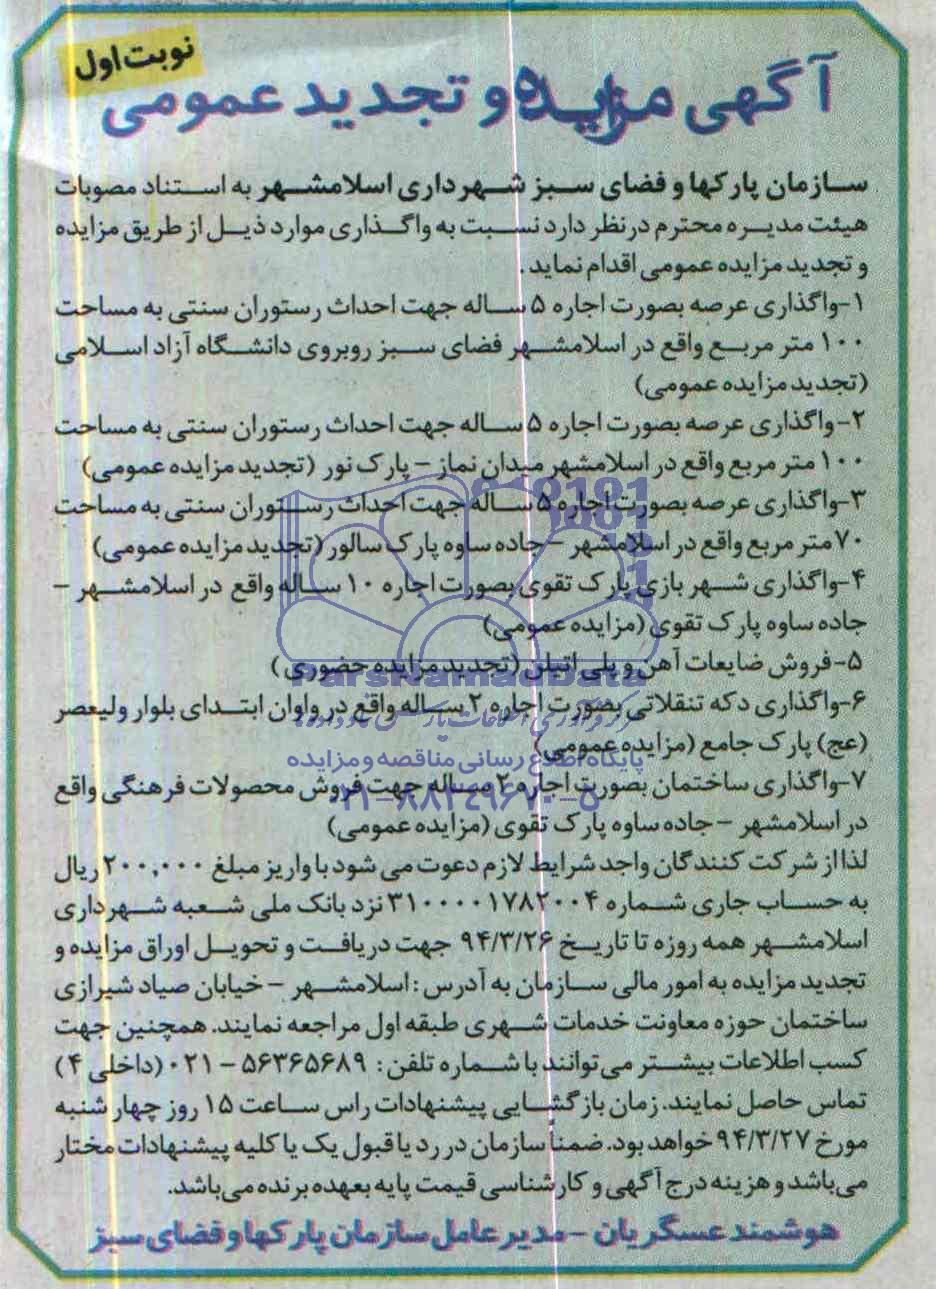 نوبت اول
آگهی مزایده و تجدید عمومی
سازمان پارکها و فضای سبز شهرداری اسلامشهر به استناد مصوبات
هیئت مدیره محترم در نظر دارد نسبت به واگذاری موارد ذیل از طریق مزایده
و تجدید مزایده عمومی اقدام نماید.
۱-واگذاری عرصه بصورت اجاره ۵ ساله جهت احداث رستوران سنتی به مساحت
۱۰۰ متر مربع واقع در اسلامشهر فضای سبز روبروی دانشگاه آزاد اسلامی
(تجدید مزایده عمومی)
۲-واگذاری عرصه بصورت اجاره ۵ ساله جهت احداث رستوران سنتی به مساحت
۱۰۰ متر مربع واقع در اسلامشهر میدان نماز - پارک نور (تجدید مزایده عمومی)
۳-واگذاری عرصه بصورت اجاره ۵ ساله جهت احداث رستوران سنتی به مساحت
۷۰ متر مربع واقع در اسلامشهر - جاده ساوه پارک سالور (تجدید مزایده عمومی)
۴-واگذاری شهر بازی پارک تقوی بصورت اجاره ۱۰ ساله واقع در اسلامشهر -
جاده ساوه پارک تقوی (مزایده عمومی)
۵-فروش ضایعات آهن و پلی اتیلن (تجدید مزایده حضوری)
ParsNamadData
۶-واگذاری دکه تنقلاتی بصورت اجاره ۲ ساله واقع در واوان ابتدای بلوار ولیعصر
(عج) پارک جامع (مزایده عمومی)
پایگاه اطلاع رسانی مناقصه و مزایده
۷-واگذاری ساختمان بصورت اجاره ۲ ساله جهت فروش محصولات فرهنگی واقع
۰۲۱-۸۸۳۴۹۶۷۰-۵
در اسلامشهر - جاده ساوه پارک تقوی (مزایده عمومی)
لذا از شرکت کنندگان واجد شرایط لازم دعوت می شود با واریز مبلغ ۲۰۰,۰۰۰ ریال
به حساب جاری شماره ۳۱۰۰۰۰۱۷۸۲۰۰۴ نزد بانک ملی شعبه شهرداری
اسلامشهر همه روزه تا تاریخ ۹۴/۳/۲۶ جهت دریافت و تحویل اوراق مزایده و
تجدید مزایده به امور مالی سازمان به آدرس: اسلامشهر - خیابان صیاد شیرازی
ساختمان حوزه معاونت خدمات شهری طبقه اول مراجعه نمایند. همچنین جهت
کسب اطلاعات بیشتر می توانند با شماره تلفن: ۵۶۳۶۵۶۸۹ - ۰۲۱ (داخلی ۴)
تماس حاصل نمایند. زمان بازگشایی پیشنهادات راس ساعت ۱۵ روز چهار شنبه
مورخ ۹۴/۳/۲۷ خواهد بود. ضمناً سازمان در رد یا قبول یک یا کلیه پیشنهادات مختار
می‌باشد و هزینه درج آگهی و کارشناسی قیمت پایه بعهده برنده می‌باشد.
هوشمند عسگریان - مدیر عامل سازمان پارکها و فضای سبز